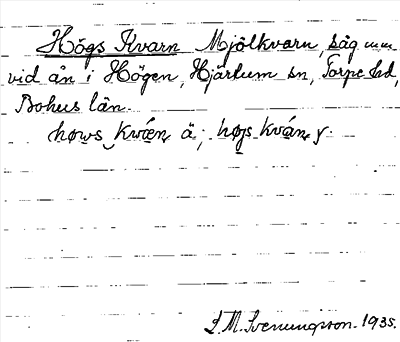 Högs Kvarn Mjölkvarn, såg mm
vid ån i Högen, Hjärtum sn, Torpe hd,
Bohus län.
høws kvæn ä; høgs kván y.
S.M. Svenungsson. 1935.